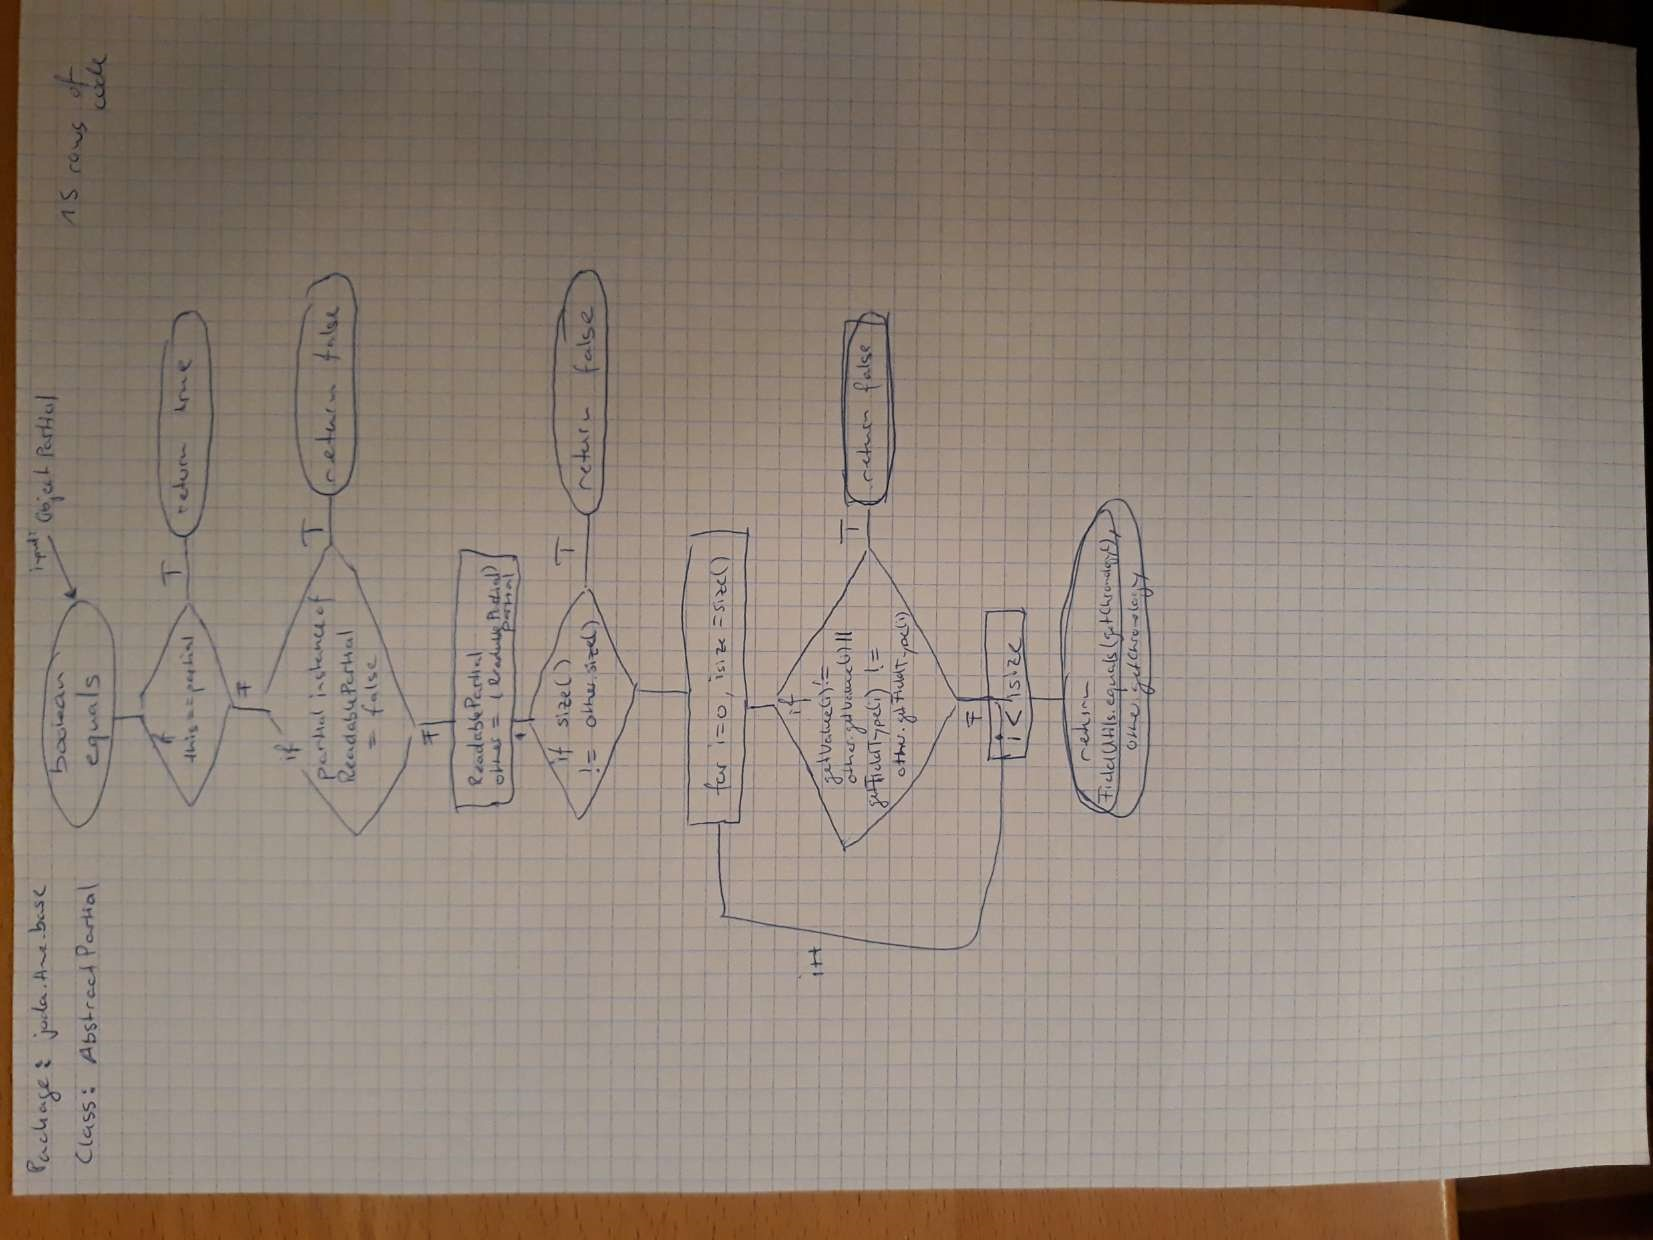 Package: joda.time.base
Class: AbstractPartial
15 rows of
code
input:
Object Partial
boolean
equals
if
this == partial
T
return true
F
if
partial instance of
ReadablePartial
= false
T
return false
F
ReadablePartial
other = (ReadablePartial)
partial
if size()
!= other.size()
T
return false
for i=0, isize = size()
if
getValue(i) !=
other.getValue(i) ||
getFieldType(i) !=
other.getFieldType(i)
T
return false
F
i < isize
i++
return
FieldUtils.equals(getChronology(),
other.getChronology